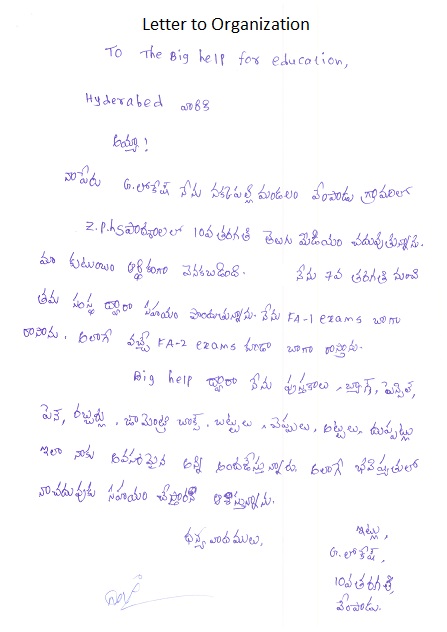 Letter to Organization
To The Big help for education,
Hyderabed వారికి
అయ్యా!
నాపేరు G.లోకేష్ నేను నక్కపల్లి మండలం వేంపాడు గ్రామంలో
Z.P.hSపాఠశాలలో 10వ తరగతి తెలుగు మీడియం చదువుతున్నాను.
మా కుటుంబం ఆర్థికంగా వెనకబడింది. నేను 7వ తరగతి నుంచి
తమ సంస్థ ద్వారా సహాయం పొందుతున్నాను. నేను FA-1 exams బాగా
రాసాను, అలాగే వచ్చే FA-2 exams కూడా బాగా రాస్తాను.
Big help ద్వారా నేను పుస్తకాలు, బ్యాగ్, పెన్సిల్,
పెన్, రబ్బర్లు, జామెంట్రీ బాక్స్, బట్టలు, చెప్పులు, అట్టలు, దుప్పట్లు
ఇలా నాకు అవసరమైన అన్ని అందజేస్తున్నారు. అలాగే భవిష్యతులో
నాచదువుకు సహాయం చేస్తారని ఆశిస్తున్నాను.
ధన్యవాదములు,
ఇట్లు,
G.లోకేష్,
10వతరగతి,
వేంపాడు.